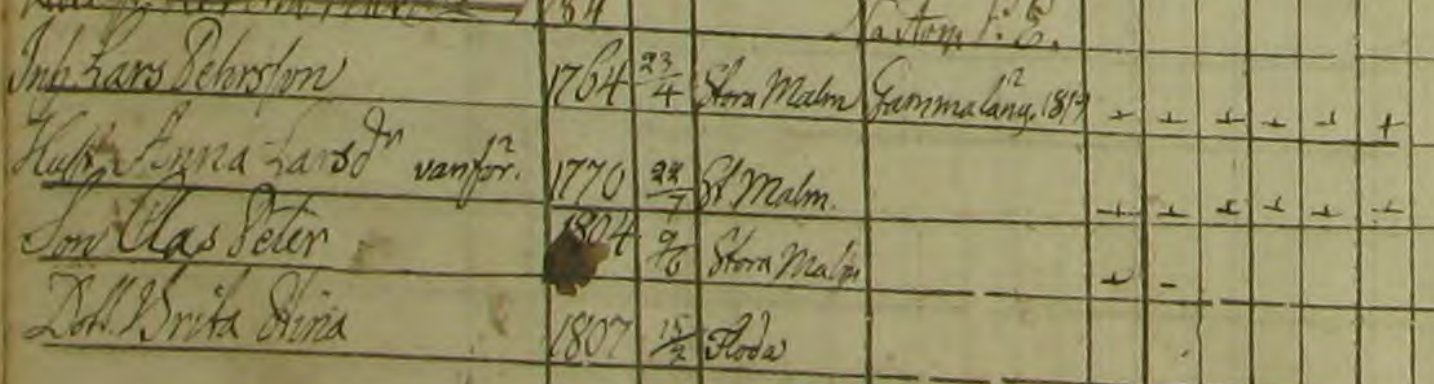 84
Inh Lars Pehrsson 1764 23/4 Stora Malm Gammaläng. 1819 + + + + + +
Hust. Anna Larsdr vanför. 1770 22/7 St Malm. + + + + + +
Son Clas Peter 1804 9/6 Stora Malm + -
Dott. Brita Stina 1807 15/2 Floda